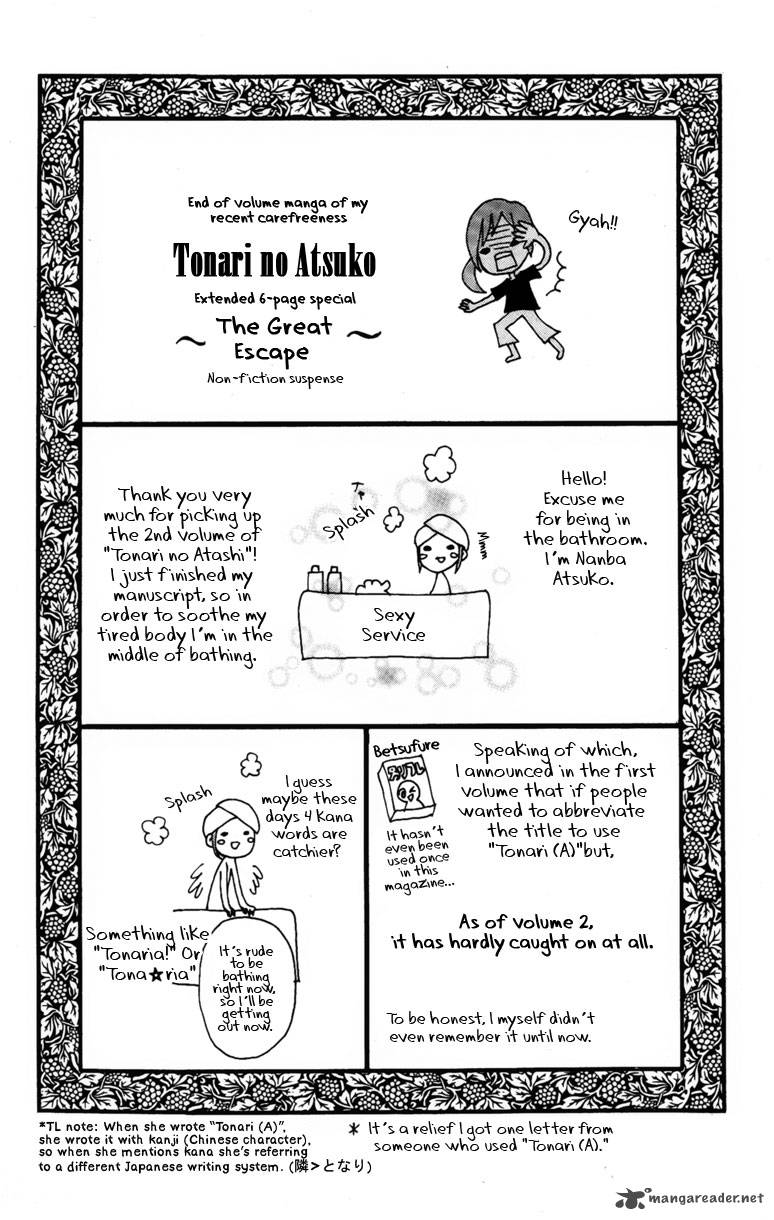 End of volume manga of my
recent carefreeness
Tonari no Atsuko
Extended 6-page special
~ The Great ~
Escape
Non-fiction suspense
Gyah!!
Hello!
Excuse me
for being in
the bathroom.
I'm Nanba
Atsuko.
Mmm
Splash
Sexy
Service
Thank you very
much for picking up
the 2nd volume of
"Tonari no Atashi"!
I just finished my
manuscript, so in
order to soothe my
tired body I'm in the
middle of bathing.
Speaking of which,
I announced in the first
volume that if people
wanted to abbreviate
the title to use
"Tonari (A)" but,
Betsufure
It hasn't
even been
used once
in this
magazine...
As of volume 2,
it has hardly caught on at all.
To be honest, I myself didn't
even remember it until now.
I guess
maybe these
days 4 Kana
words are
catchier?
Splash
Something like
"Tonaria!" Or
"Tona★ria"
It's rude
to be
bathing
right now,
so I'll be
getting
out now.
* It's a relief I got one letter from
someone who used "Tonari (A)."
*TL note: When she wrote "Tonari (A)",
she wrote it with kanji (Chinese character),
so when she mentions kana she's referring
to a different Japanese writing system. (隣>となり)
mangareader.net